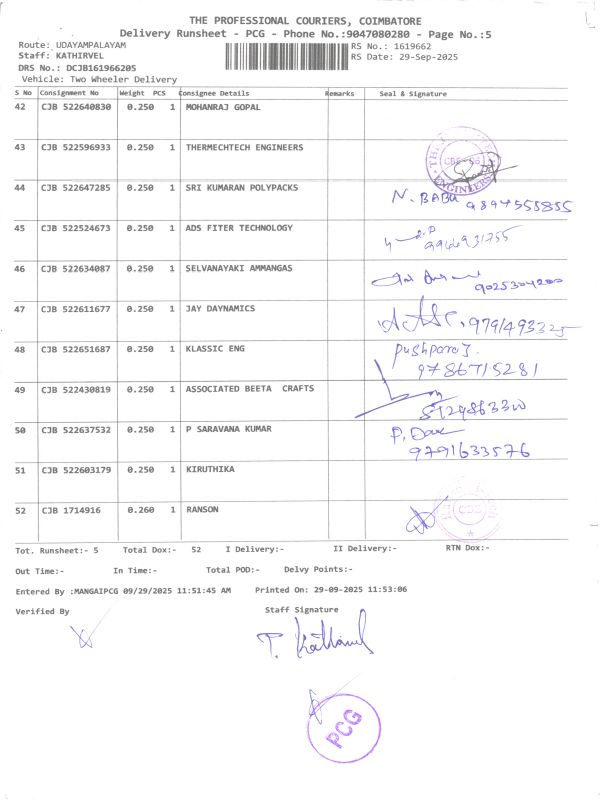 THE PROFESSIONAL COURIERS, COIMBATORE
Delivery Runsheet - PCG - Phone No.:9047080280 - Page No.:5
Route: UDAYAMPALAYAM
RS No.: 1619662
Staff: KATHIRVEL
RS Date: 29-Sep-2025
DRS No.: DCJB161966205
Vehicle: Two Wheeler Delivery
S No Consignment No Weight PCS Consignee Details Remarks Seal & Signature
42 CJB 522640830 0.250 1 MOHANRAJ GOPAL
43 CJB 522596933 0.250 1 THERMECHTECH ENGINEERS
ENGINEERS
44 CJB 522647285 0.250 1 SRI KUMARAN POLYPACKS N. BABU 9894555855
45 CJB 522524673 0.250 1 ADS FITER TECHNOLOGY
46 CJB 522634087 0.250 1 SELVANAYAKI AMMANGAS
47 CJB 522611677 0.250 1 JAY DAYNAMICS
48 CJB 522651687 0.250 1 KLASSIC ENG pushparaj.
9786715281
49 CJB 522430819 0.250 1 ASSOCIATED BEETA CRAFTS
50 CJB 522637532 0.250 1 P SARAVANA KUMAR
9791633576
51 CJB 522603179 0.250 1 KIRUTHIKA
52 CJB 1714916 0.260 1 RANSON
Tot. Runsheet:- 5 Total Dox:- 52 I Delivery:- II Delivery:- RTN Dox:-
Out Time:- In Time:- Total POD:- Delvy Points:-
Entered By :MANGAIPCG 09/29/2025 11:51:45 AM Printed On: 29-09-2025 11:53:06
Verified By Staff Signature
PCG